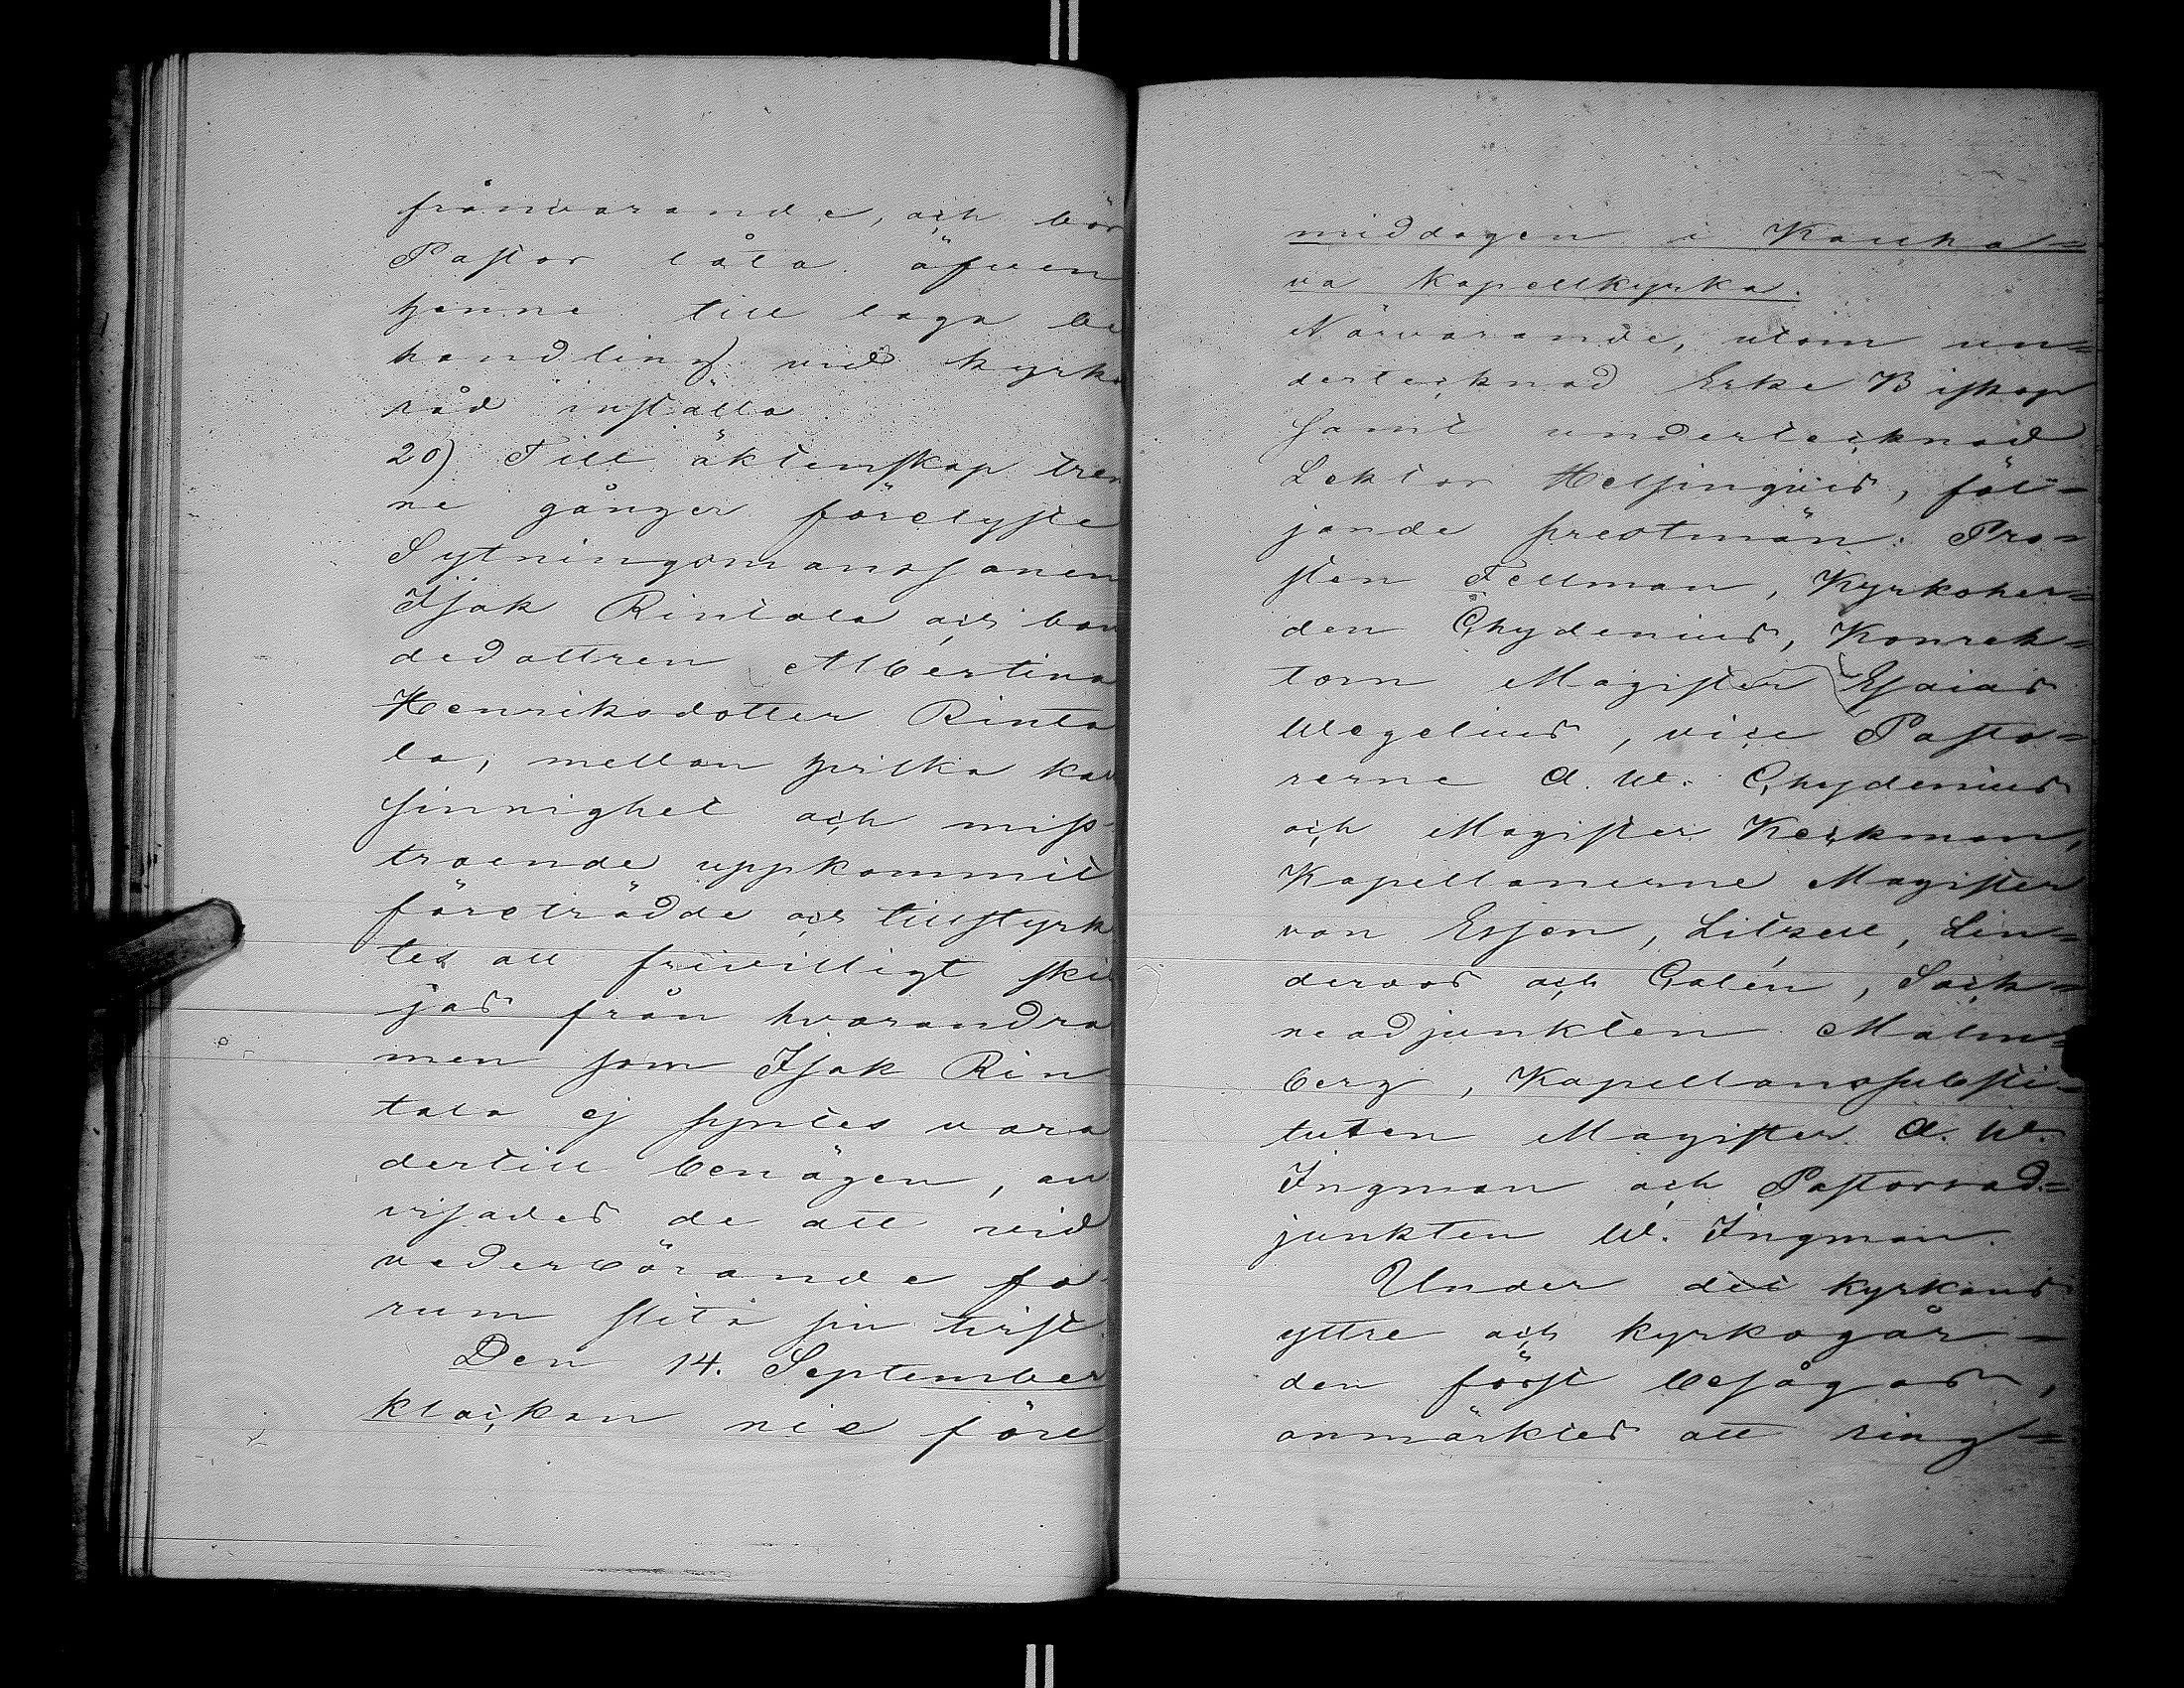 frånvarande, och bör
Pastor låta äfven
henne till laga be
handling vid kyrko
råd inställa.
20) Till äktenskap tren
ne gånger förelyste
Sytningsmanssonen
Isak Rintala och bon
dedottren Albertina
Henriksdotter Rinta
la, mellan hvilka kall
sinnighet och miss
troende uppkommit
företrädde och tillstyrk
tes att frivilligt skil
jas från hvarandra
men som Isak Rin
tala ej syntes vara
dertill benägen, an
visades de att vid
vederbörande fo
rum slita sin tvist.
Den 14. September
klockan nie före
middagen i Kauha=
va Kapellkyrka.
Närvarande, utom un=
dertecknad Erke Biskop
samt undertecknad
Lektor Helsingius, föl=
jande prestmän: Pro=
sten Fellman, Kyrkoher=
den Chydenius, Konrek=
torn Magister Esaias
Wegelius, vice Pasto=
rerne A. W. Chydenius
och Magister Keckman,
Kapellanerne Magister
von Essen, Litzell, Lin=
deroos och Calén, Sock=
neadjunkten Malm=
berg, Kapellanssubsti=
tuten Magister A. W.
Ingman och Pastorsad=
junkten W. Ingman.
Under det kyrkans
yttre och kyrkogår=
den först besågos,
anmärktes att ring=